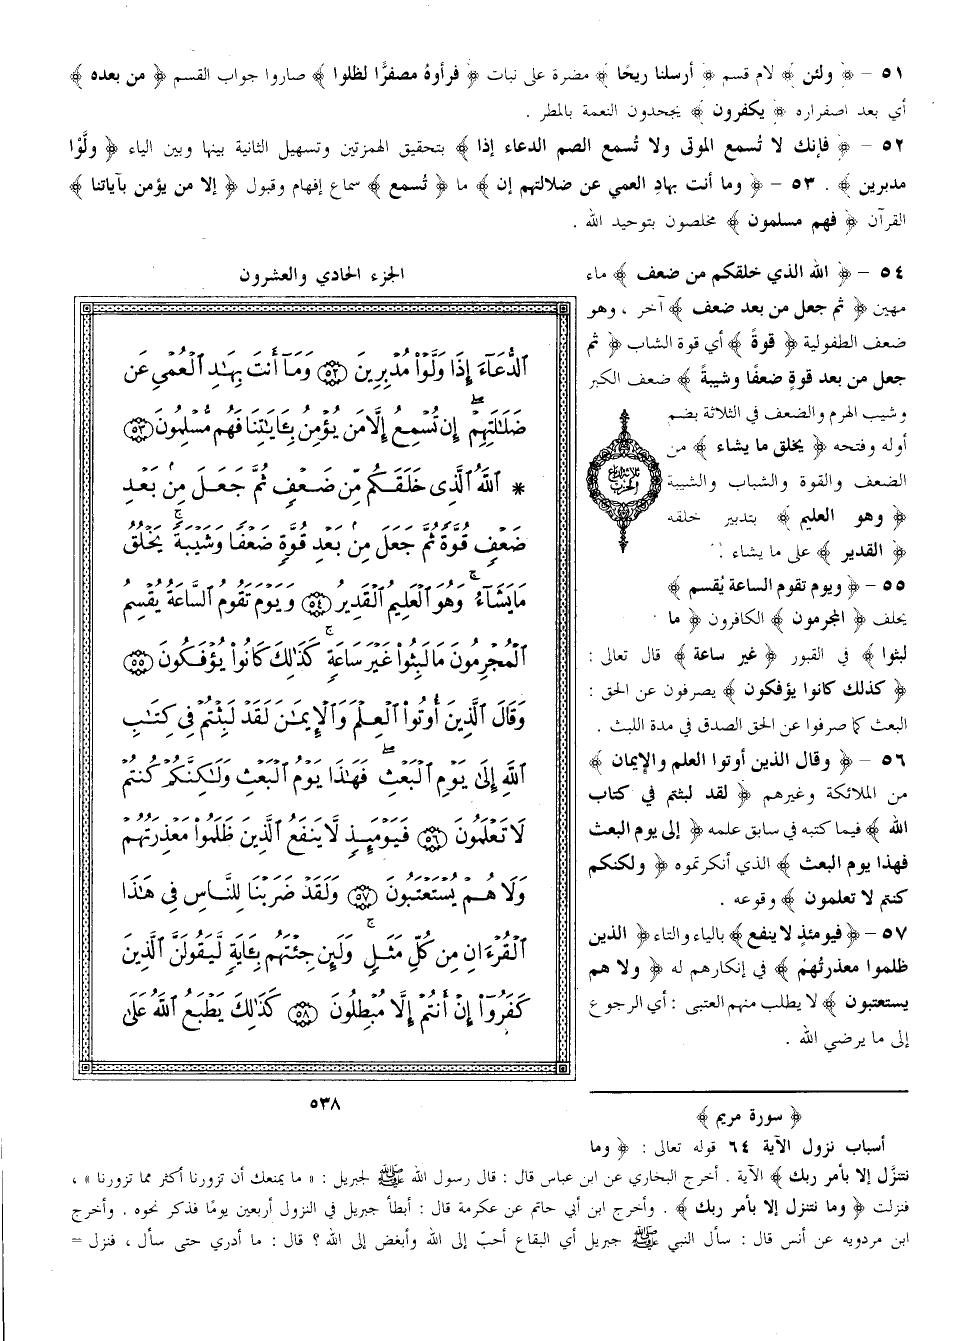 ٥١ – ﴿ ولئن ﴾ لام قسم ﴿ أرسلنا ريحًا ﴾ مضرة على نبات ﴿ فرأوهُ مصفرًّا لظلوا ﴾ صاروا جواب القسم ﴿ من بعده ﴾
أي بعد اصفراره ﴿ يكفرون ﴾ يجحدون النعمة بالمطر .
٥٢ – ﴿ فإنك لا تُسمع الموتى ولا تُسمع الصم الدعاء إذا ﴾ بتحقيق الهمزتين وتسهيل الثانية بينها وبين الياء ﴿ ولَّوْا
مدبرين ﴾ . ٥٣ – ﴿ وما أنت بهادِ العمي عن ضلالتهم إن ﴾ ما ﴿ تُسمع ﴾ سماع إفهام وقبول ﴿ إلا من يؤمن بآياتنا ﴾
القرآن ﴿ فهم مسلمون ﴾ مخلصون بتوحيد الله .
٥٤ – ﴿ الله الذي خلقكم من ضعف ﴾ ماء
مهين ﴿ ثم جعل من بعد ضعف ﴾ آخر ، وهو
ضعف الطفولية ﴿ قوةً ﴾ أي قوة الشاب ﴿ ثم
جعل من بعد قوةٍ ضعفًا وشيبةً ﴾ ضعف الكبر
وشيب الهرم والضعف في الثلاثة بضم
أوله وفتحه ﴿ يخلق ما يشاء ﴾ من
الضعف والقوة والشباب والشيبة
﴿ وهو العليم ﴾ بتدبير خلقه
﴿ القدير ﴾ على ما يشاء .
٥٥ – ﴿ ويوم تقوم الساعة يُقسم ﴾
يحلف ﴿ المجرمون ﴾ الكافرون ﴿ ما
لبثوا ﴾ في القبور ﴿ غير ساعة ﴾ قال تعالى :
﴿ كذلك كانوا يؤفكون ﴾ يصرفون عن الحق :
البعث كما صرفوا عن الحق الصدق في مدة اللبث .
٥٦ – ﴿ وقال الذين أوتوا العلم والإيمان ﴾
من الملائكة وغيرهم ﴿ لقد لبثتم في كتاب
الله ﴾ فيما كتبه في سابق علمه ﴿ إلى يوم البعث
فهذا يوم البعث ﴾ الذي أنكرتموه ﴿ ولكنكم
كنتم لا تعلمون ﴾ وقوعه .
٥٧ – ﴿ فيومئذٍ لا ينفع ﴾ بالياء والتاء ﴿ الذين
ظلموا معذرتُهمْ ﴾ في إنكارهم له ﴿ ولا هم
يستعتبون ﴾ لا يطلب منهم العتبى : أي الرجوع
إلى ما يرضي الله .
الجزء الحادي والعشرون
ٱلدُّعَآءَ إِذَا وَلَّوْاْ مُدْبِرِينَ ٥٢ وَمَآ أَنتَ بِهَـٰدِ ٱلْعُمْىِ عَن
ضَلَـٰلَتِهِمْ ۖ إِن تُسْمِعُ إِلَّا مَن يُؤْمِنُ بِـَٔايَـٰتِنَا فَهُم مُّسْلِمُونَ ٥٣
* ٱللَّهُ ٱلَّذِى خَلَقَكُم مِّن ضَعْفٍ ثُمَّ جَعَلَ مِنۢ بَعْدِ
ضَعْفٍ قُوَّةً ثُمَّ جَعَلَ مِنۢ بَعْدِ قُوَّةٍ ضَعْفًا وَشَيْبَةً ۚ يَخْلُقُ
مَا يَشَآءُ ۚ وَهُوَ ٱلْعَلِيمُ ٱلْقَدِيرُ ٥٤ وَيَوْمَ تَقُومُ ٱلسَّاعَةُ يُقْسِمُ
ٱلْمُجْرِمُونَ مَا لَبِثُواْ غَيْرَ سَاعَةٍ ۚ كَذَٰلِكَ كَانُواْ يُؤْفَكُونَ ٥٥
وَقَالَ ٱلَّذِينَ أُوتُواْ ٱلْعِلْمَ وَٱلْإِيمَـٰنَ لَقَدْ لَبِثْتُمْ فِى كِتَـٰبِ
ٱللَّهِ إِلَىٰ يَوْمِ ٱلْبَعْثِ ۖ فَهَـٰذَا يَوْمُ ٱلْبَعْثِ وَلَـٰكِنَّكُمْ كُنتُمْ
لَا تَعْلَمُونَ ٥٦ فَيَوْمَئِذٍ لَّا يَنفَعُ ٱلَّذِينَ ظَلَمُواْ مَعْذِرَتُهُمْ
وَلَا هُمْ يُسْتَعْتَبُونَ ٥٧ وَلَقَدْ ضَرَبْنَا لِلنَّاسِ فِى هَـٰذَا
ٱلْقُرْءَانِ مِن كُلِّ مَثَلٍ ۚ وَلَئِن جِئْتَهُم بِـَٔايَةٍ لَّيَقُولَنَّ ٱلَّذِينَ
كَفَرُوٓاْ إِنْ أَنتُمْ إِلَّا مُبْطِلُونَ ٥٨ كَذَٰلِكَ يَطْبَعُ ٱللَّهُ عَلَىٰ
٥٣٨
﴿ سورة مريم ﴾
أسباب نزول الآية ٦٤ قوله تعالى : ﴿ وما
نتنزَّل إلا بأمر ربك ﴾ الآية . أخرج البخاري عن ابن عباس قال : قال رسول الله ﷺ لجبريل : « ما يمنعك أن تزورنا أكثر مما تزورنا » ،
فنزلت ﴿ وما نتنزل إلا بأمر ربك ﴾ . وأخرج ابن أبي حاتم عن عكرمة قال : أبطأ جبريل في النزول أربعين يومًا فذكر نحوه . وأخرج
ابن مردويه عن أنس قال : سأل النبي ﷺ جبريل أي البقاع أحبّ إلى الله وأبغض إلى الله ؟ قال : ما أدري حتى سأل ، فنزل =